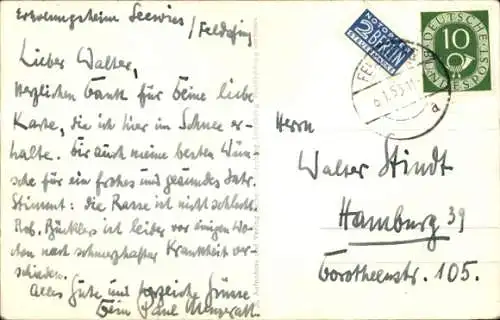 Erholungsheim Seewies / Feldafing
Lieber Walter,
Herzlichen Dank für Deine liebe
Karte, die ich hier im Schnee er-
halte. Dir auch meine besten Wün-
sche für ein frohes und gesundes Jahr.
Stimmt: die Rasse ist nicht schlecht.
Rob. ist leider vor einigen Wo-
chen nach schmerzhafter Krankheit ver-
schieden.
Alles Gute und herzliche Grüsse
Dein Paul
NOTOPFER
2 BERLIN
STEUERMARKE
DEUTSCHE BUNDESPOST
10
6.1.53
a
Herrn
Walter Stindt
Hamburg 39
Dorotheenstr. 105.